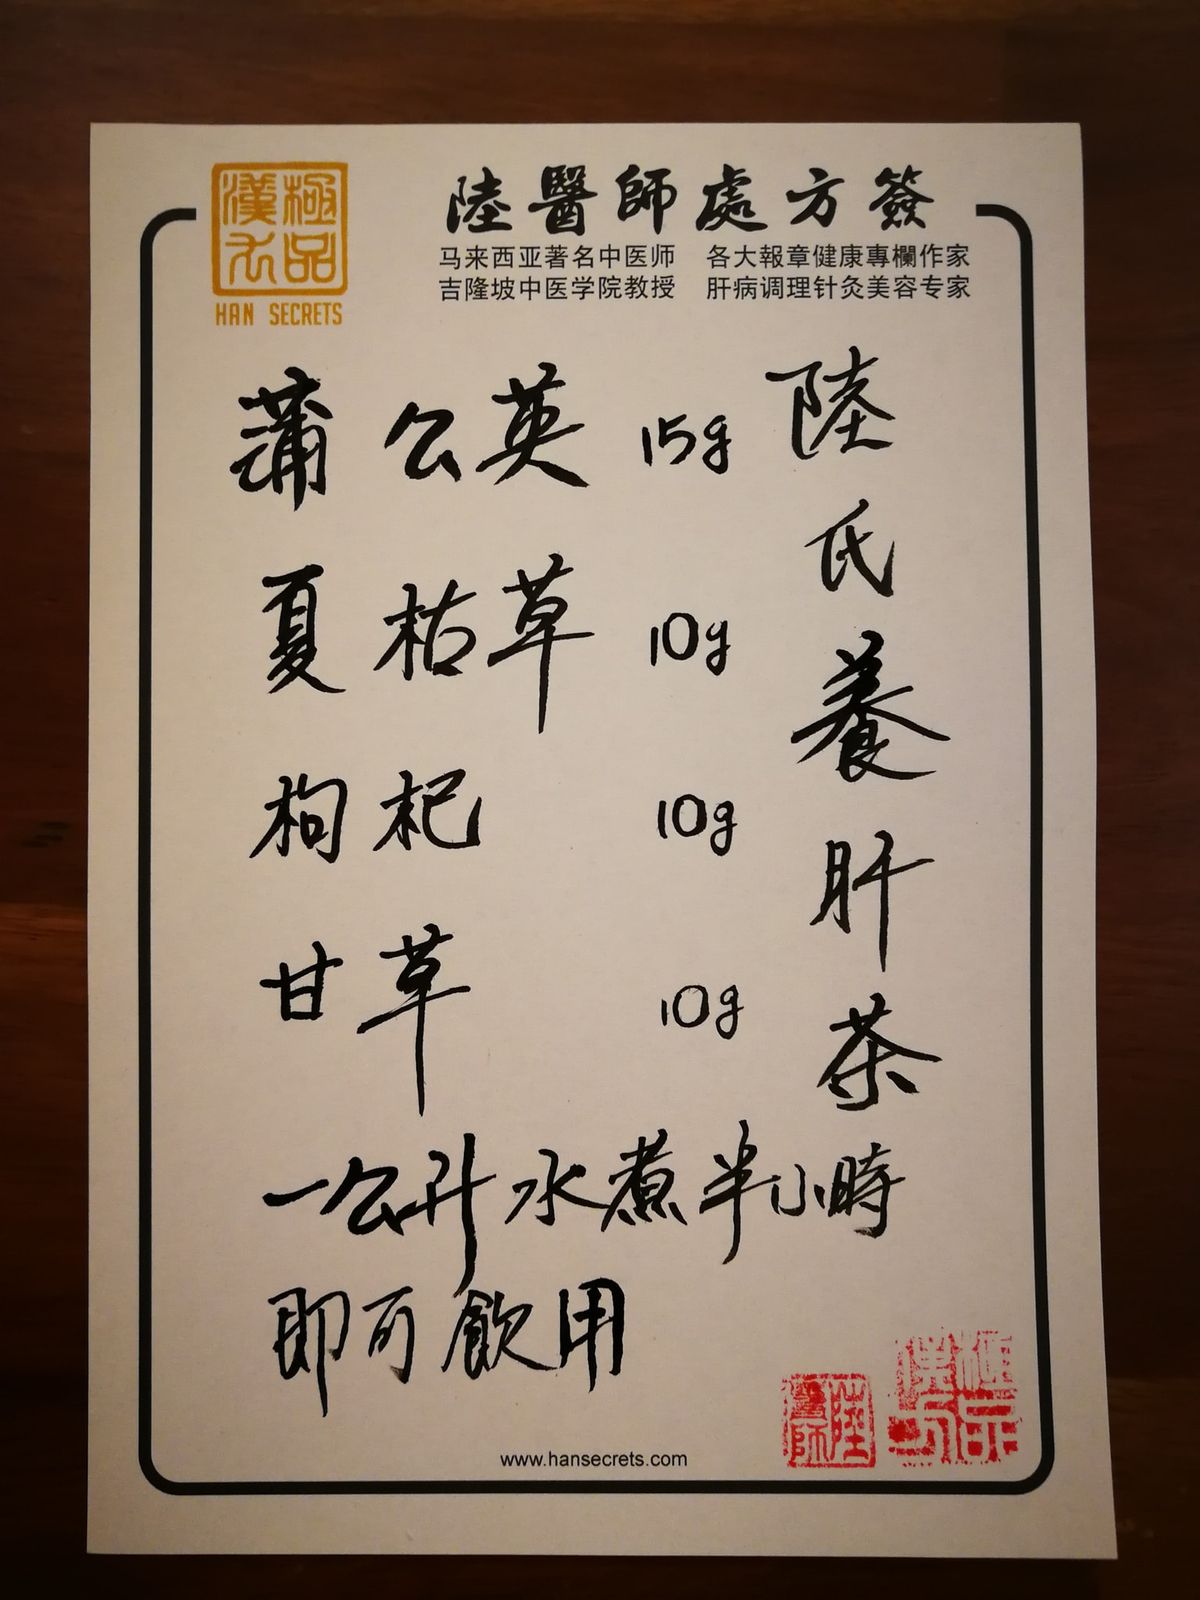 極品
漢方
HAN SECRETS
陸醫師處方簽
马来西亚著名中医师 各大報章健康專欄作家
吉隆坡中医学院教授 肝病调理针灸美容专家
陸氏養肝茶
蒲公英 15g
夏枯草 10g
枸杞 10g
甘草 10g
一公升水煮半小時
即可飲用
陸醫師
極品
漢方
www.hansecrets.com